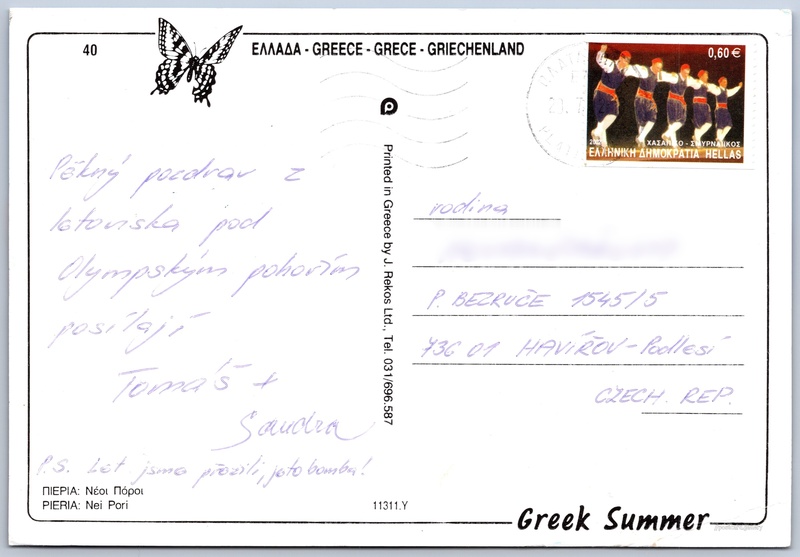 40
ΕΛΛΑΔΑ - GREECE - GRECE - GRIECHENLAND
0,60 €
ΧΑΣΑΠΙΚΟ - ΣΜΥΡΝΑΙΙΚΟΣ
ΕΛΛΗΝΙΚΗ ΔΗΜΟΚΡΑΤΙΑ HELLAS
Pěkný pozdrav z
letoviska pod
Olympským pohořím
posílají
Tomáš +
Sandra
P.S. Let jsme přežili, je to bomba!
Printed in Greece by J. Rekos Ltd., Tel. 031/696.587
rodina
P. BEZRUČE 1545/5
736 01 HAVÍŘOV-Podlesí
CZECH. REP.
ΠΙΕΡΙΑ: Νέοι Πόροι
PIERIA: Nei Pori
11311.Y
Greek Summer